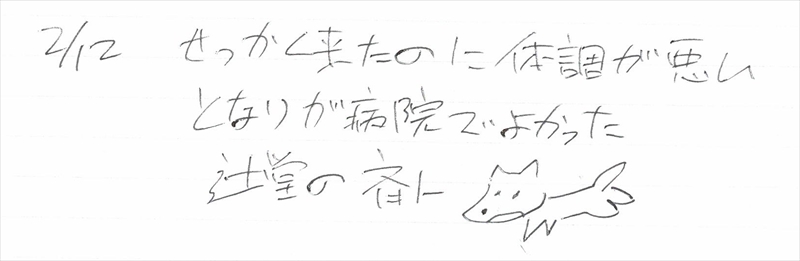 2/12 せっかく来たのに体調が悪い
となりが病院でよかった
辻堂の斉ト